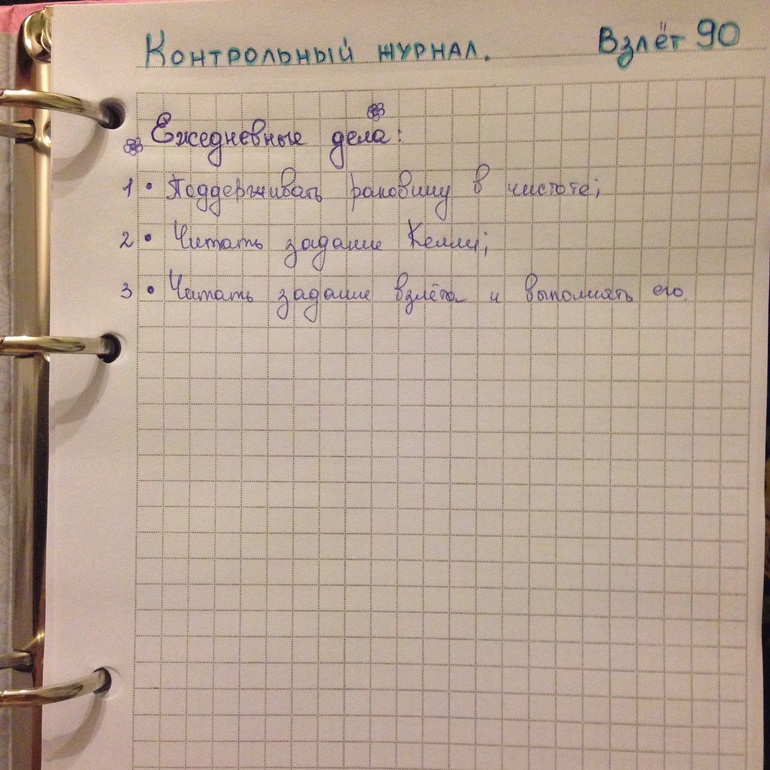 Контрольный журнал. Взлёт 90
Ежедневные дела:
1 • Поддерживать раковину в чистоте;
2 • Читать задание Келли;
3 • Читать задание взлёта и выполнять его.